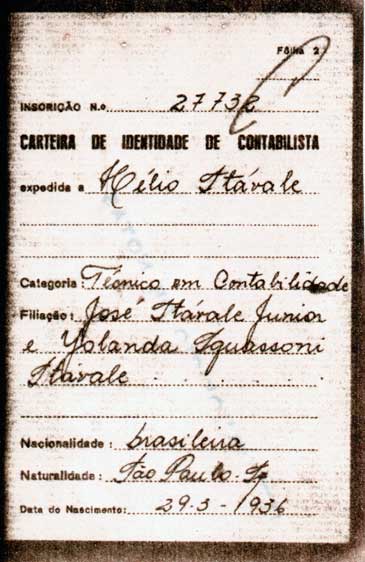 Fôlha 2
INSCRIÇÃO N.o 27732
CARTEIRA DE IDENTIDADE DE CONTABILISTA
expedida a Hélio Stávale
Categoria: Técnico em Contabilidade
Filiação: José Stávale Junior
e Yolanda Squassoni
Stavale
Nacionalidade: brasileira
Naturalidade: São Paulo - Sp
Data do Nascimento: 29-5-1936